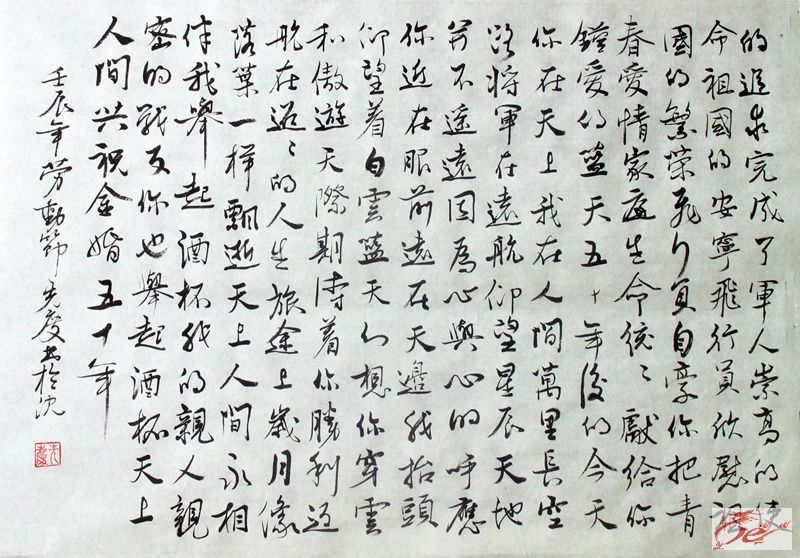 的追求完成了軍人崇高的使
命祖國的安寧飛行員欣慰祖
國的繁荣飛行員自豪你把青
春愛情家庭生命統〻獻給你
鍾愛的藍天五十年後的今天
你在天上我在人間萬里長空
將軍在遠航仰望星辰天地
并不遥遠因為心與心的呼應
你近在眼前遠在天邊我抬頭
仰望着白雲藍天幻想你穿雲
和傲遊天際期待着你勝利返
航在遥〻的人生旅途上歲月像
落葉一样飄逝天上人間永相
伴我舉起酒杯我的親人親
密的戰友你也舉起酒杯天上
人間共祝金婚五十年
壬辰年劳動節先慶書於沈